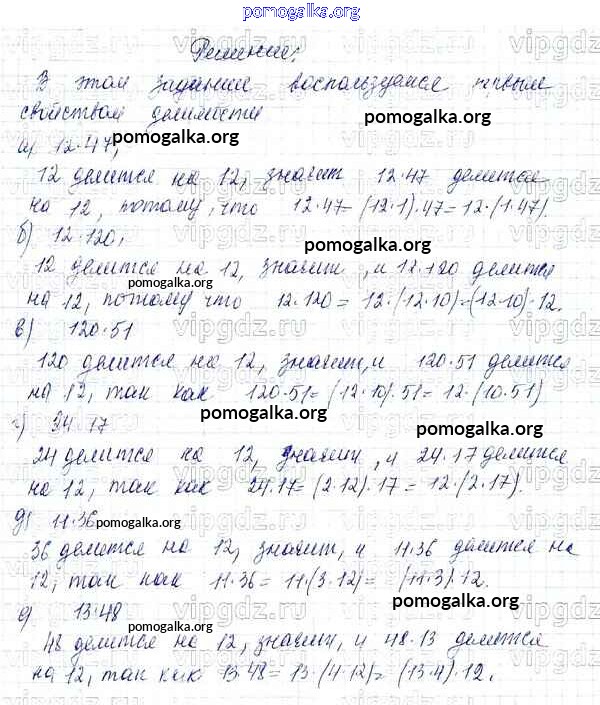 pomogalka.org
Решение:
В этом задании воспользуемся первым
свойством делимости
pomogalka.org
а) 12·47;
12 делится на 12, значит 12·47 делится
на 12, потому, что 12·47=(12·1)·47=12·(1·47).
б) 12·120;
pomogalka.org
12 делится на 12, значит, и 12·120 делится
на 12, потому что 12·120 = 12·(12·10)=(12·10)·12.
в) 120·51
120 делится на 12, значит, и 120·51 делится
на 12, так как 120·51=(12·10)·51=12·(10·51)
pomogalka.org
г) 34·17
24 делится на 12, значит, и 24·17 делится
на 12, так как 24·17=(2·12)·17=12·(2·17).
д) 11·36 pomogalka.org
36 делится на 12, значит, и 11·36 делится на
12, так как 11·36=11·(3·12)= (11·3)·12.
pomogalka.org
е) 13·48
pomogalka.org
48 делится на 12, значит, и 48·13 делится
на 12, так как 13·48=13·(4·12)= (13·4)·12.